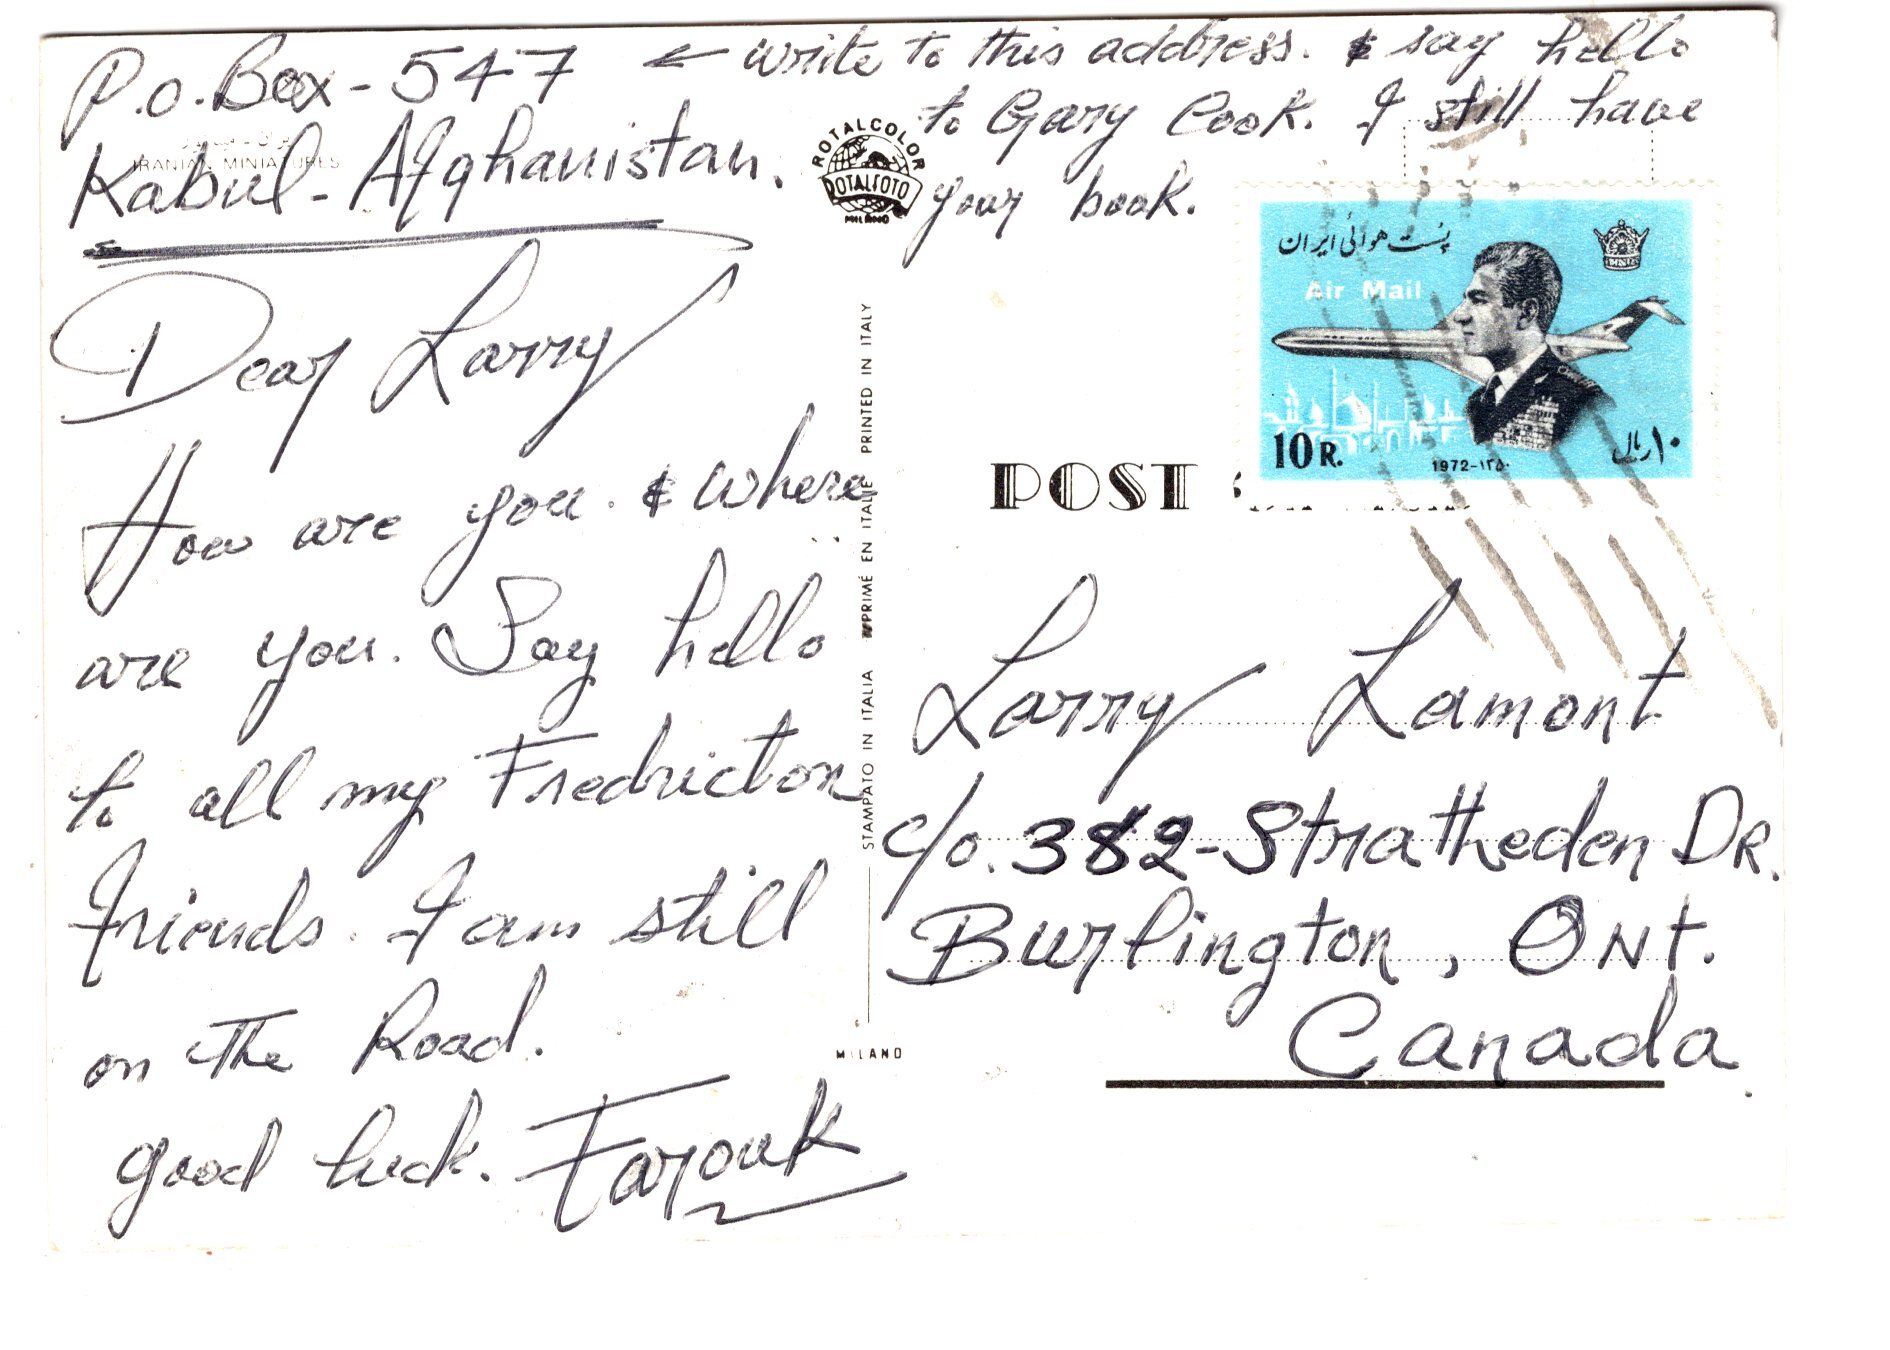 P.o. Box - 547
Kabul - Afghanistan.
IRANIAN MINIATURES
← write to this address. & say hello
to Gary Cook. I still have
your book.
Dear Larry
How are you. & where
are you. Say hello
to all my Fredricton
friends. I am still
on the Road.
good luck. Farouk
ROTALCOLOR
ROTALFOTO
MILANO
STAMPATO IN ITALIA IMPRIMÉ EN ITALIE PRINTED IN ITALY
MILANO
پست هوائی ایران
Air Mail
10 R.
1972-۱۳۵۰
۱۰ ریال
POST
Larry Lamont
c/o. 382-Stratheden DR.
Burlington, ONt.
Canada.